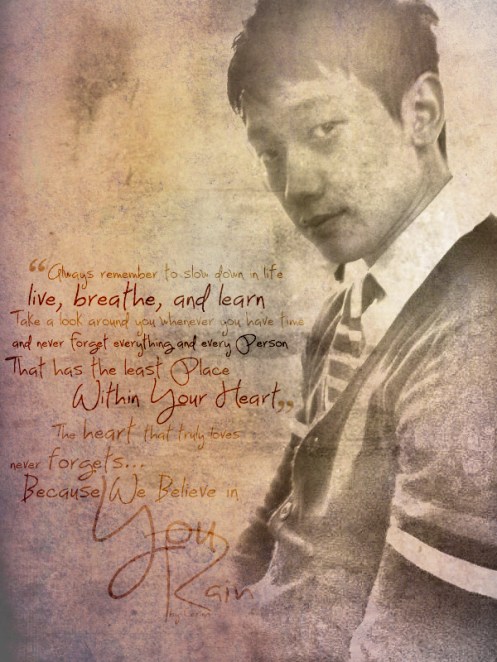 “Always remember to slow down in life
live, breathe, and learn
Take a look around you whenever you have time
and never forget everything and every Person
That has the least Place
Within Your Heart,,
The heart that truly loves
never forgets...
Because We Believe in
You
Rain